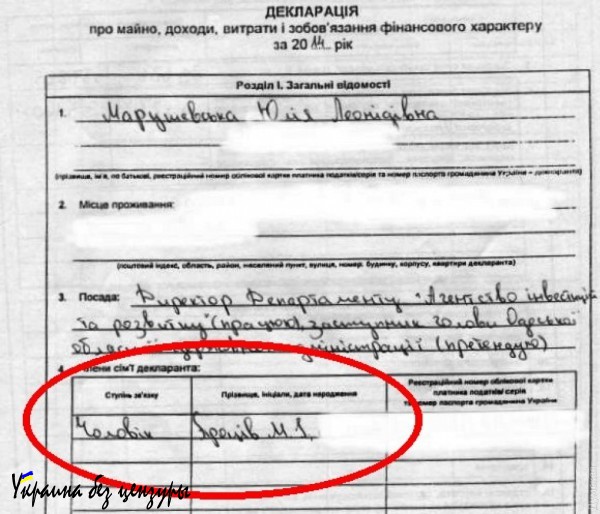 ДЕКЛАРАЦІЯ
про майно, доходи, витрати і зобов'язання фінансового характеру
за 2014 рік
Розділ I. Загальні відомості
1. Марушевська Юлія Леонідівна
(прізвище, ім'я, по батькові, реєстраційний номер облікової картки платника податків/серія та номер паспорта громадянина України – декларанта)
2. Місце проживання:
(поштовий індекс, область, район, населений пункт, вулиця, номер: будинку, корпусу, квартири декларанта)
3. Посада: Директор Департаменту "Агентство інвестицій
та розвитку" (працюю), заступник голови Одеської
обласної державної адміністрації (претендую)
4. Члени сім'ї декларанта:
Ступінь зв'язку
Прізвище, ініціали, дата народження
Реєстраційний номер облікової картки
платника податків/серія
та номер паспорта громадянина України
Чоловік
М.І.
Украина без цензуры